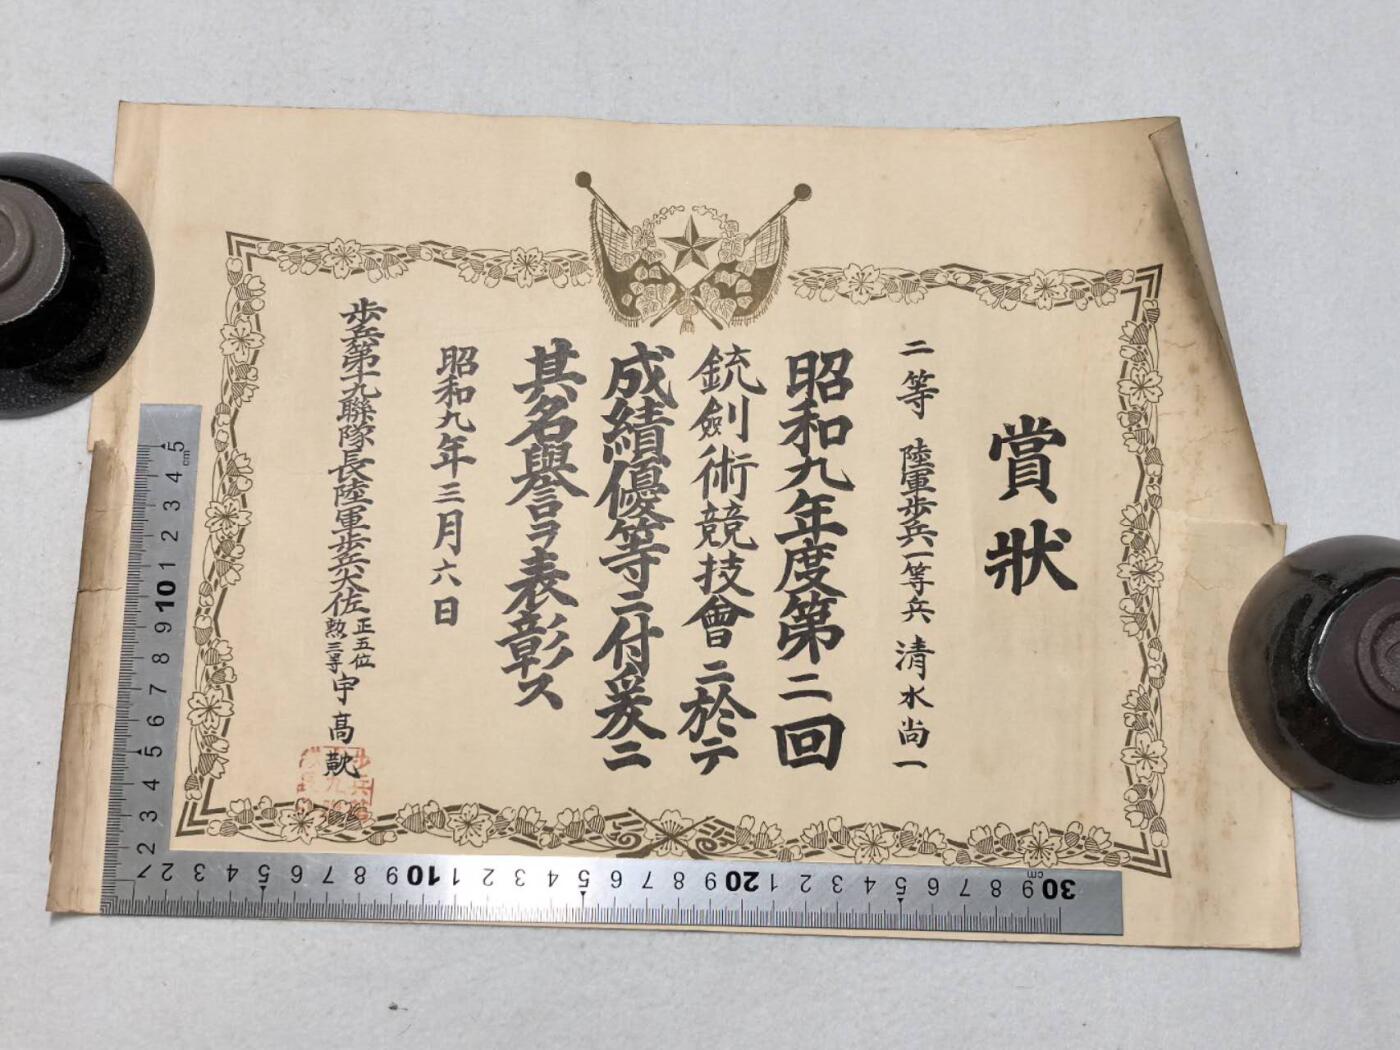 賞狀
二等 陸軍歩兵一等兵 清水尚一
昭和九年度第二回
銃劍術競技會ニ於テ
成績優等ニ付爰ニ
其名譽ヲ表彰ス
昭和九年三月六日
歩兵第十九聯隊長陸軍歩兵大佐 正五位 勲三等 宇高
5 4 3 2 1 10 9 8 7 6 5 4 3 2
cm
2 3 4 5 6 7 8 9 10 1 2 3 4 5 6 7 8 9 20 1 2 3 4 5 6 7 8 9 30
cm